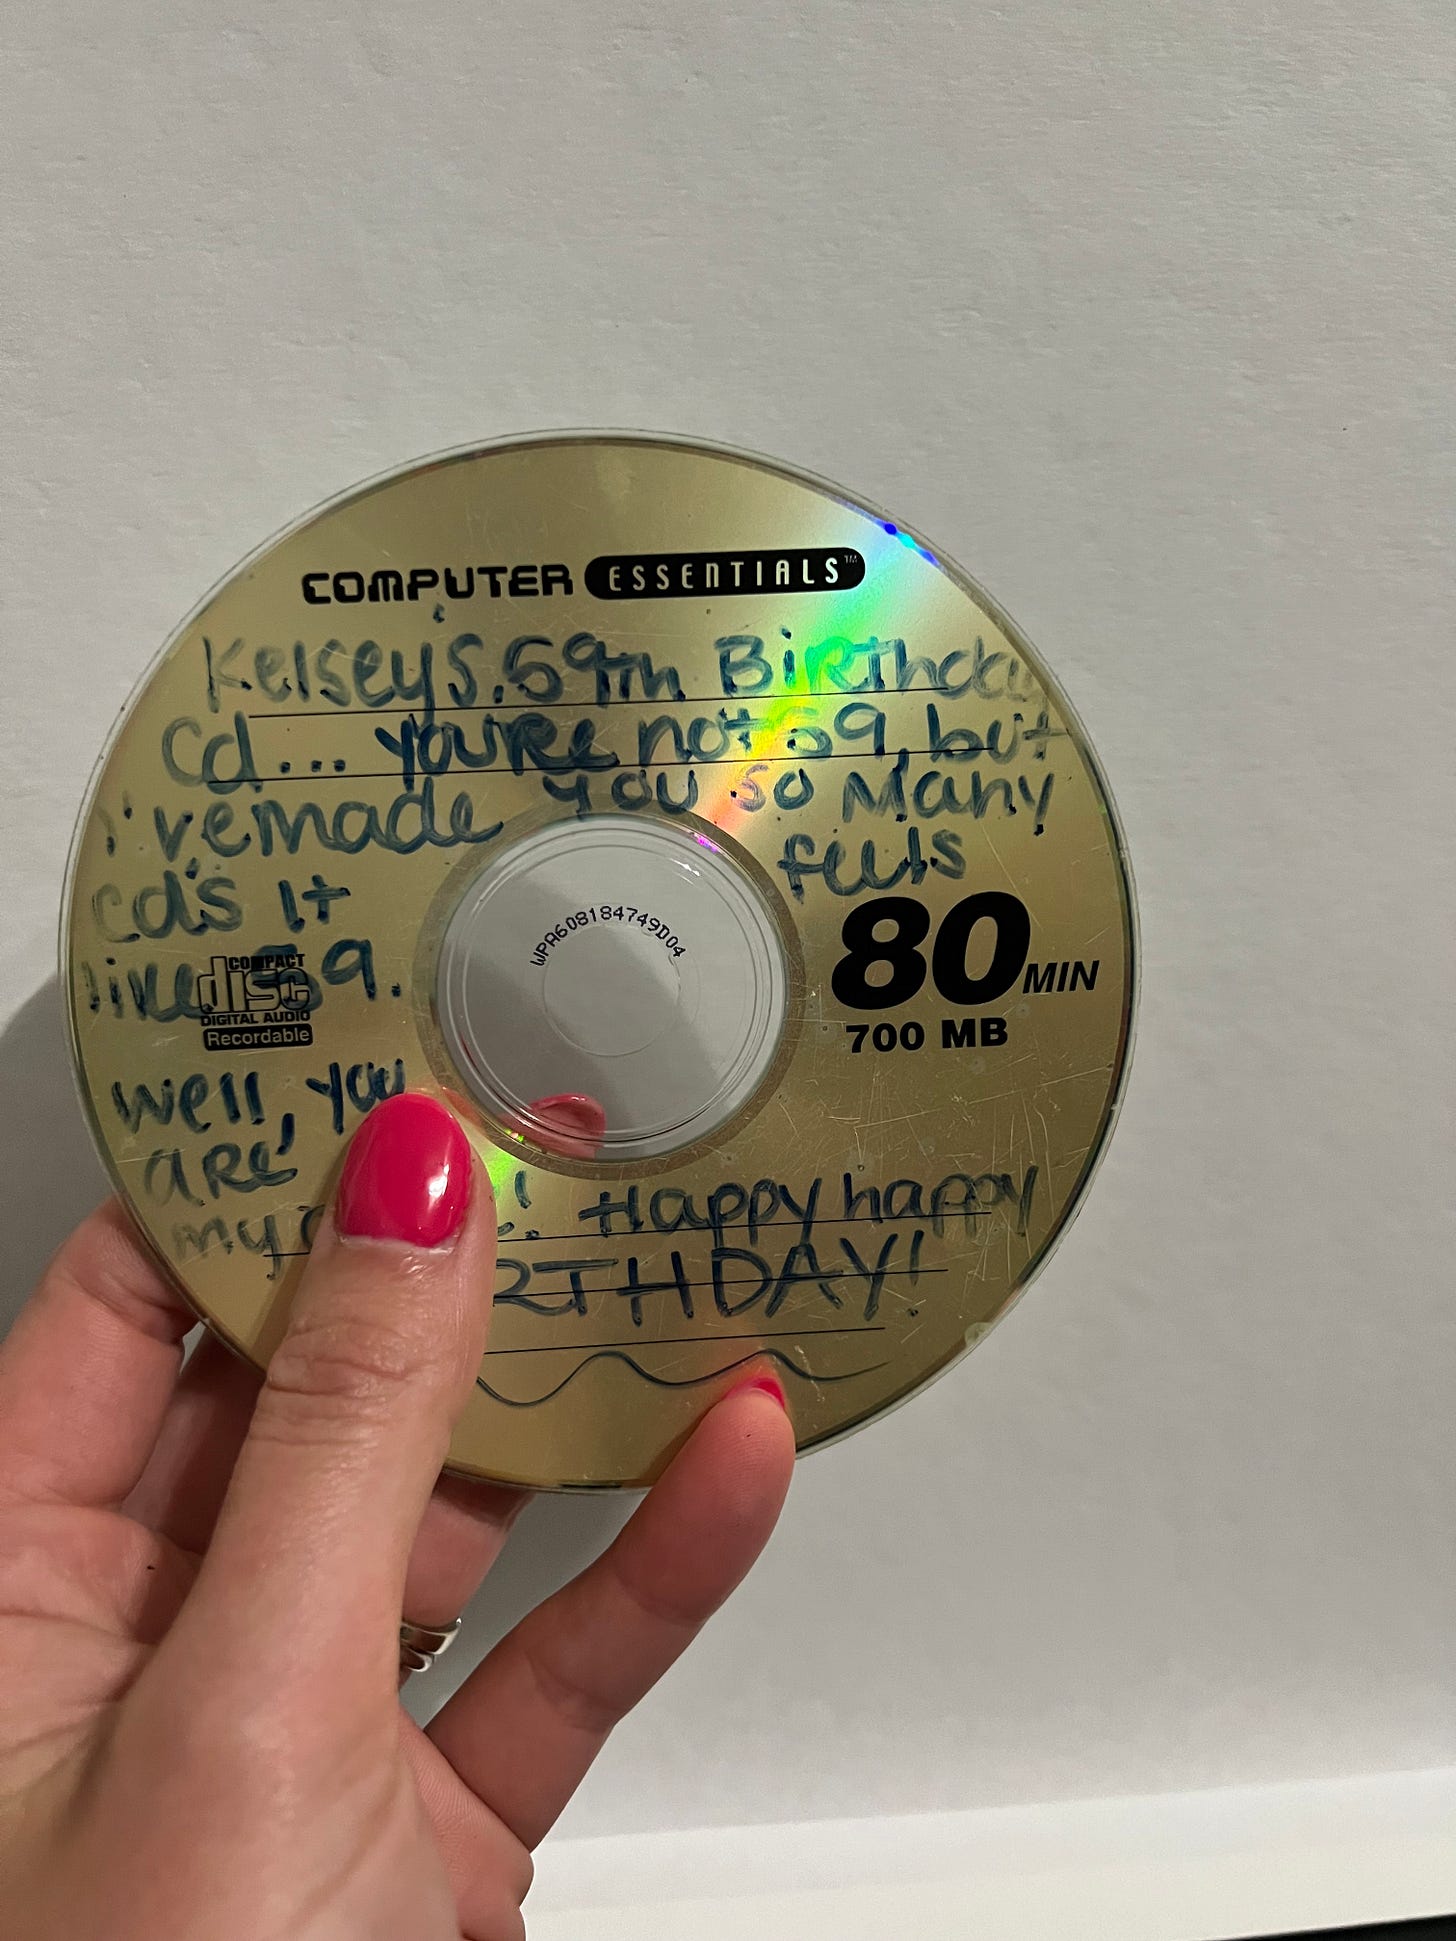 COMPUTER ESSENTIALS™
Kelsey's 59th Birthday
Cd... you're not 59, but
i've made you so many
cd's it feels
like 59.
COMPACT
disc
DIGITAL AUDIO
Recordable
80 MIN
700 MB
WPA608184749D04
well, you
are
my ! Happy happy
BIRTHDAY!